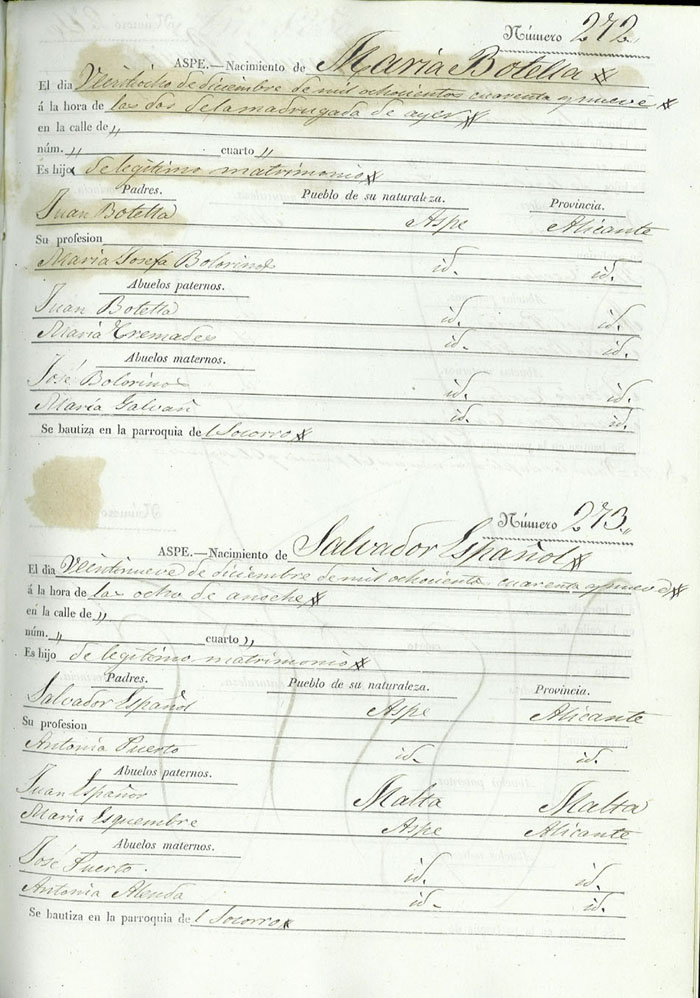 Número 272.
ASPE.—Nacimiento de Maria Botella
El dia Veintiocho de diciembre de mil ochocientos cuarenta y nueve
á la hora de las dos de la madrugada de ayer
en la calle de „
núm. „ cuarto „
Es hija de legítimo matrimonio
Padres. Pueblo de su naturaleza. Provincia.
Juan Botella Aspe Alicante
Su profesion
Maria Josefa Bolorinos id. id.
Abuelos paternos.
Juan Botella id. id.
Maria Cremades id. id.
Abuelos maternos.
José Bolorinos id. id.
Maria Galvañ id. id.
Se bautiza en la parroquia del Socorro
Número 273.
ASPE.—Nacimiento de Salvador Español
El dia Veintinueve de diciembre de mil ochocientos cuarenta y nueve
á la hora de las ocho de anoche
en la calle de „
núm. „ cuarto „
Es hijo de legítimo matrimonio
Padres. Pueblo de su naturaleza. Provincia.
Salvador Español Aspe Alicante
Su profesion
Antonia Puerto id. id.
Abuelos paternos.
Juan Español Malta Malta
Maria Esquembre Aspe Alicante
Abuelos maternos.
José Puerto. id. id.
Antonia Alenda id. id.
Se bautiza en la parroquia del Socorro